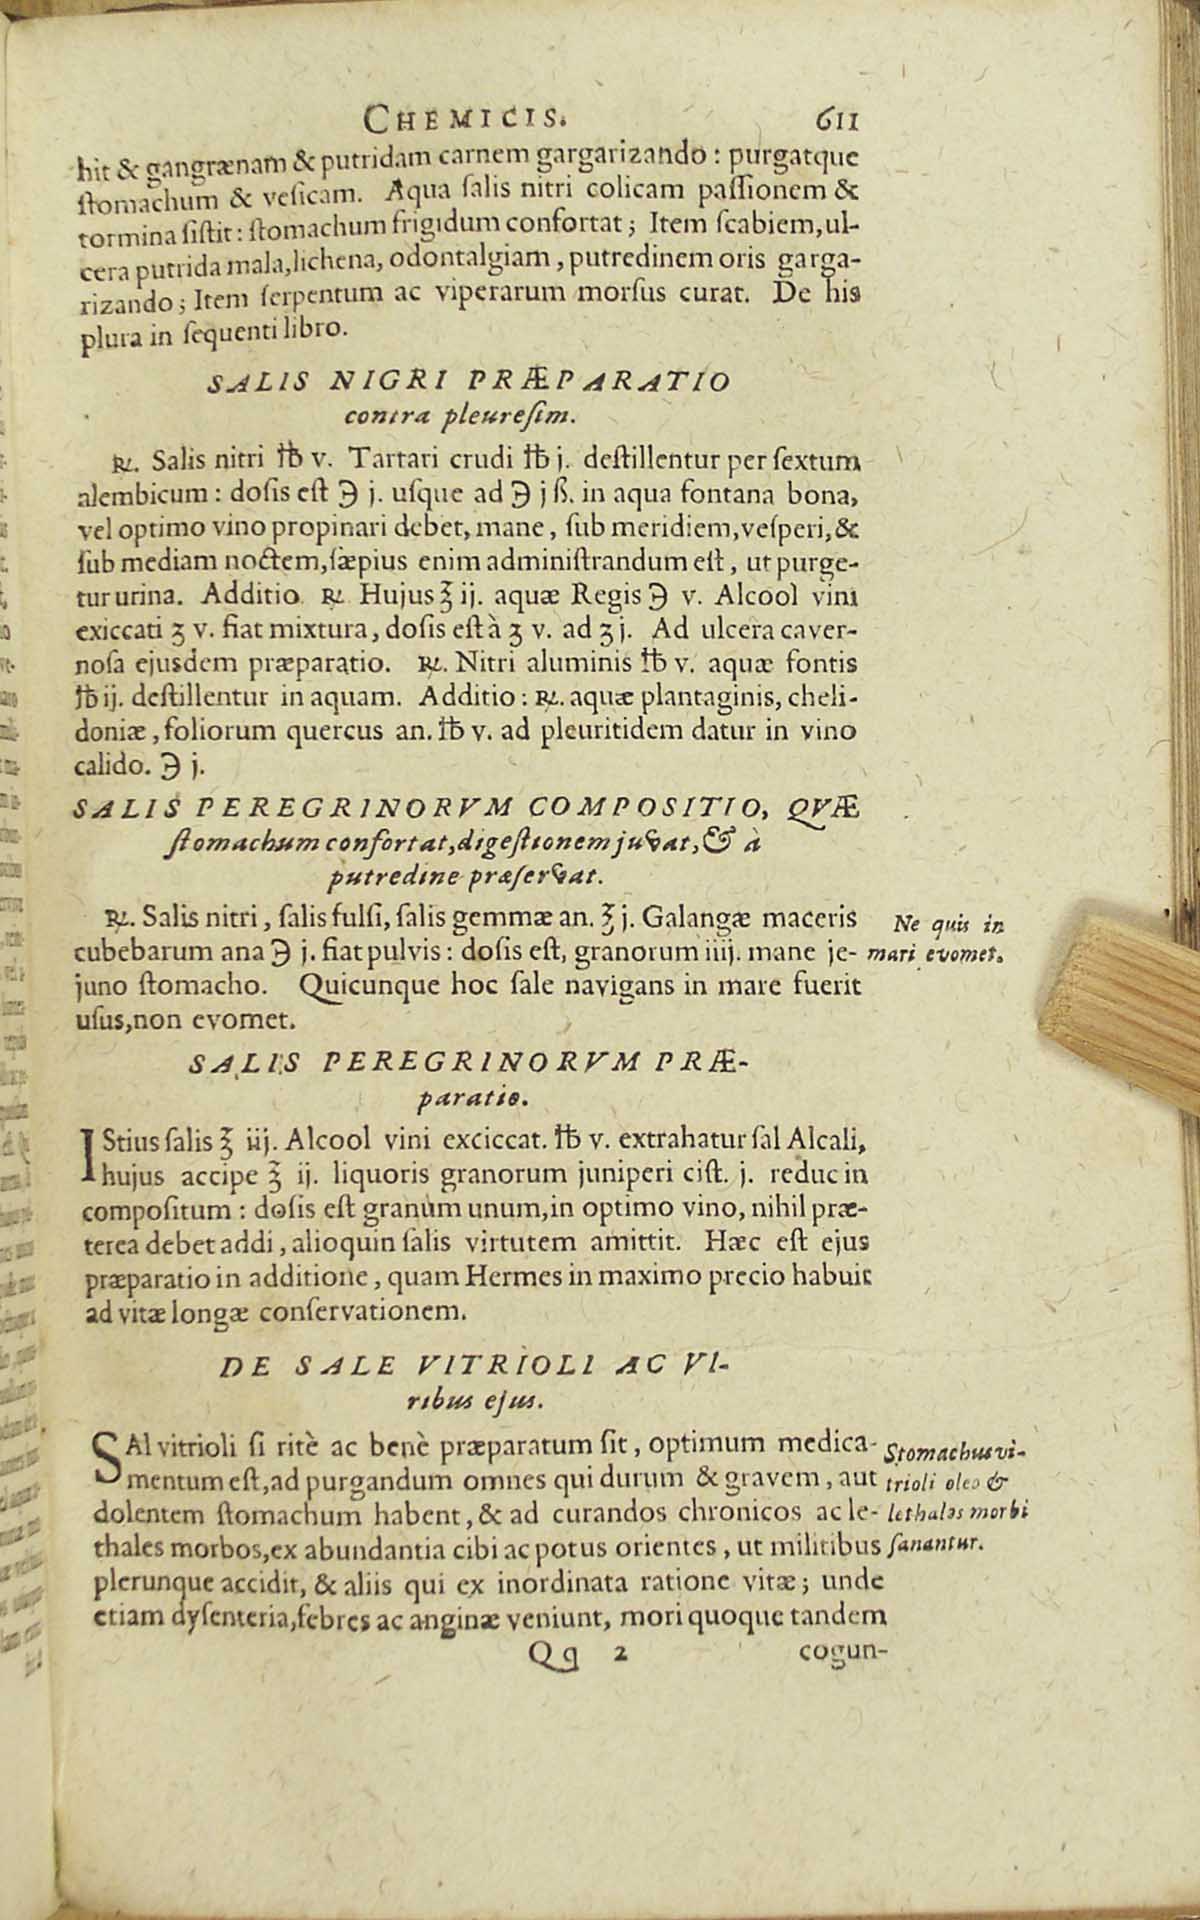 CHEMICIS. 611
hit & gangrænam & putridam carnem gargarizando : purgatque
ſtomachum & veſicam. Aqua ſalis nitri colicam paſſionem &
tormina ſiſtit : ſtomachum frigidum confortat ; Item ſcabiem, ul-
cera putrida mala, lichena, odontalgiam, putredinem oris garga-
rizando ; Item ſerpentum ac viperarum morſus curat. De his
plura in ſequenti libro.
SALIS NIGRI PRÆPARATIO
contra pleureſim.
℞. Salis nitri ℔ v. Tartari crudi ℔ j. deſtillentur per ſextum
alembicum : doſis eſt ℈ j. uſque ad ℈ j ß. in aqua fontana bona,
vel optimo vino propinari debet, mane, ſub meridiem, veſperi, &
ſub mediam noctem, ſæpius enim adminiſtrandum eſt, ut purge-
tur urina. Additio ℞ Hujus ℥ ij. aquæ Regis ℈ v. Alcool vini
exiccati ʒ v. fiat mixtura, doſis eſt à ʒ v. ad ʒ j. Ad ulcera caver-
noſa ejusdem præparatio. ℞. Nitri aluminis ℔ v. aquæ fontis
℔ ij. deſtillentur in aquam. Additio : ℞. aquæ plantaginis, cheli-
doniæ, foliorum quercus an. ℔ v. ad pleuritidem datur in vino
calido. ℈ j.
SALIS PEREGRINORVM COMPOSITIO, QVÆ
ſtomachum confortat, digeſtionem juvat, & à
putredine præſervat.
℞. Salis nitri, ſalis fuſſi, ſalis gemmæ an. ℥ j. Galangæ maceris
cubebarum ana ℈ j. fiat pulvis : doſis eſt, granorum iiij. mane je-
juno ſtomacho. Quicunque hoc ſale navigans in mare fuerit
uſus, non evomet.
Ne quis in
mari evomet.
SALIS PEREGRINORVM PRÆ-
paratio.
IStius ſalis ℥ iij. Alcool vini exciccat. ℔ v. extrahatur ſal Alcali,
hujus accipe ℥ ij. liquoris granorum juniperi ciſt. j. reduc in
compoſitum : doſis eſt granum unum, in optimo vino, nihil præ-
terea debet addi, alioquin ſalis virtutem amittit. Hæc eſt ejus
præparatio in additione, quam Hermes in maximo precio habuit
ad vitæ longæ conſervationem.
DE SALE VITRIOLI AC VI-
ribus ejus.
SAl vitrioli ſi ritè ac benè præparatum ſit, optimum medica-
mentum eſt, ad purgandum omnes qui durum & gravem, aut
dolentem ſtomachum habent, & ad curandos chronicos ac le-
thales morbos, ex abundantia cibi ac potus orientes, ut militibus
plerunque accidit, & aliis qui ex inordinata ratione vitæ ; unde
etiam dyſenteria, febres ac anginæ veniunt, mori quoque tandem
Stomachus vi-
trioli oleo &
lethales morbi
ſanantur.
Qq 2 cogun-